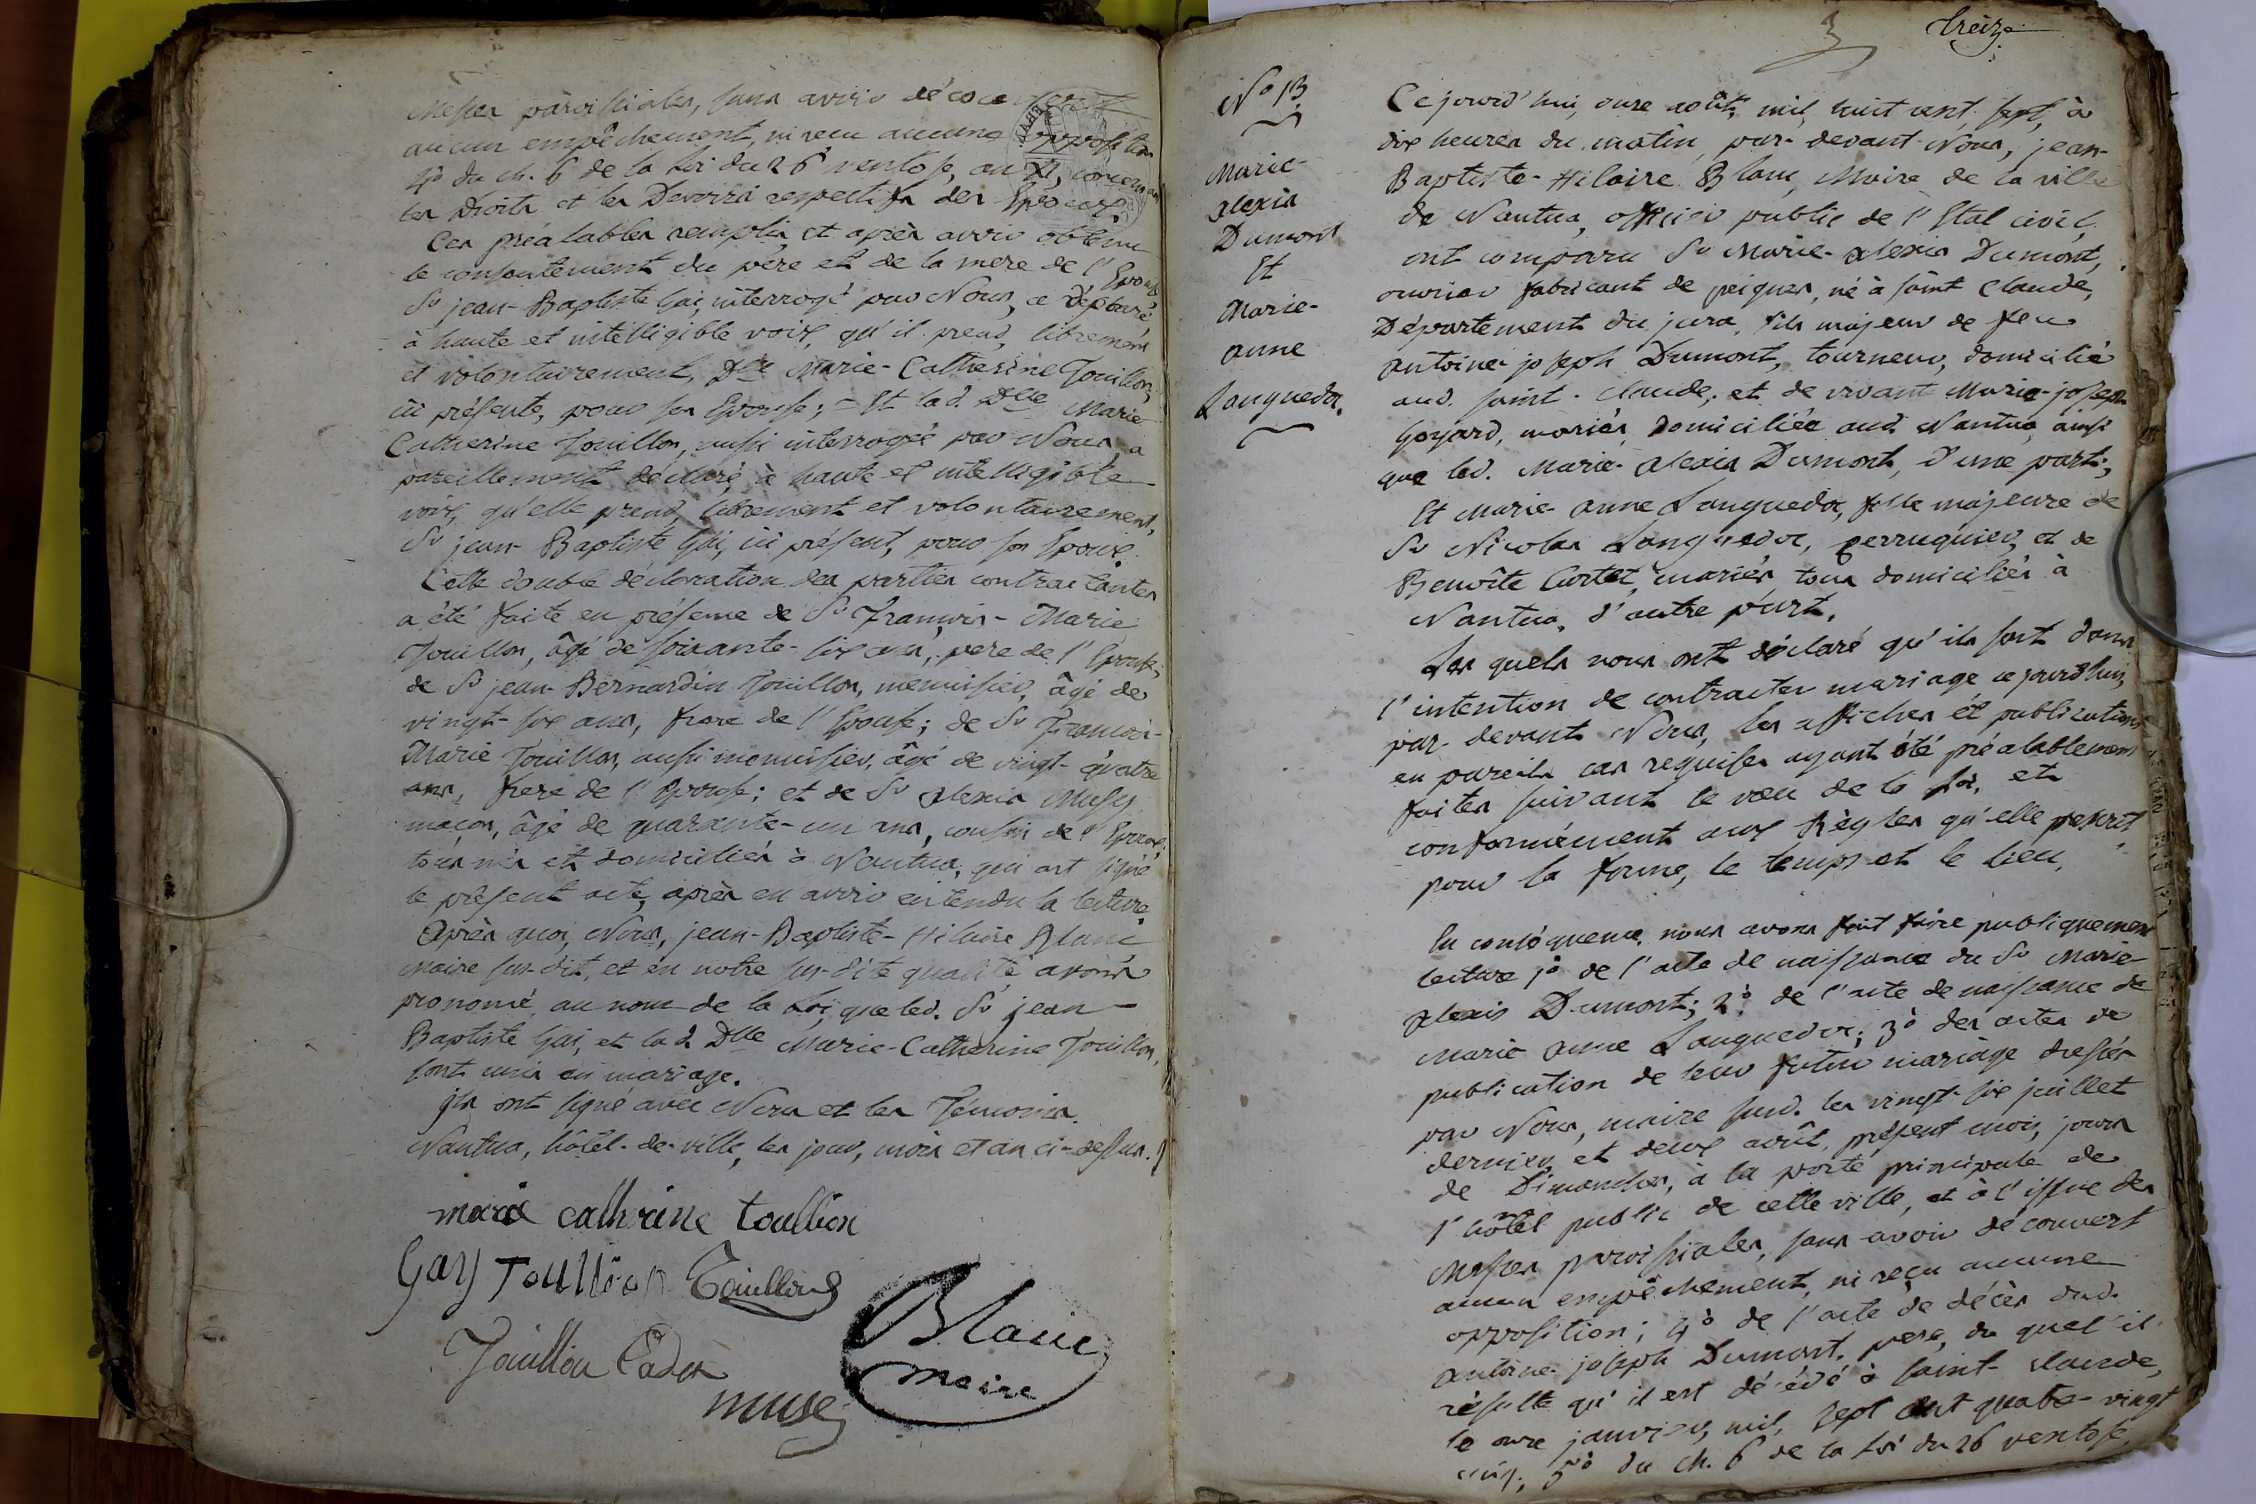 Messes paroissiales, sans avoir découvert
aucun empêchement, ni reçu aucune opposition
4° du ch. 6 de la Loi du 26 ventose, an XI, concernant
les Droits et les Devoirs respectifs des Epoux.
Ces préalables remplis, et après avoir obtenu
le consentement du père et de la mere de l'Epouse
Sr jean-Baptiste Gai, interrogé par Nous, a déclaré
à haute et intelligible voix, qu'il prend, librement
et volontairement, Dlle Marie-Catherine Touillon,
ici présente, pour son Epouse; = Et lad. Dlle Marie
Catherine Touillon, aussi interrogée par Nous, a
pareillement déclaré, à haute et intelligible
voix, qu'elle prend, librement et volontairement,
Sr jean-Baptiste Gai, ici présent, pour son Epoux.
Cette double déclaration des parties contractantes
a été faite en présence de Sr François-Marie
Touillon, âgé de soixante-six ans, pere de l'Epouse;
de Sr jean-Bernardin Touillon, menuisier, âgé de
vingt-six ans, frere de l'Epouse; de Sr François-
Marie Touillon, aussi menuisier, âgé de vingt-quatre
ans, frere de l'Epouse; et de Sr alexis Musy
maçon, âgé de quarante-un ans, cousin de l'Epoux,
tous nés et domiciliés à Nantua, qui ont signé
le présent acte, après en avoir entendu la lecture.
Après quoi, Nous, jean-Baptiste-Hilaire Blanc
maire sus-dit, et en notre sus-dite qualité, avons
prononcé, au nom de la Loi, que led. Sr jean-
Baptiste Gai, et lad. Dlle Marie-Catherine Touillon,
sont unis en mariage.
jls ont signé avec Nous et les Témoins.
Nantua, hôtel-de-ville, les jour, mois et an ci-dessus.
marie catherine toullion
Gay Toullion Touillond
Touillon Cadet
Blanc
maire
musy
3
treize
N° 13
Marie-
alexis
Dumont
Et
Marie-
anne
Languedoc.
Cejourd'hui, onze août, mil, huit cent sept, à
dix heures du matin, par-devant Nous, jean-
Baptiste-Hilaire Blanc, Maire de la ville
de Nantua, officier public de l'Etat civil,
ont comparu Sr Marie-alexis Dumont,
ouvrier fabricant de peignes, né à saint Claude,
Département du jura, fils majeur de feu
antoine-joseph Dumont, tourneur, domicilié
aud. saint-claude, et de vivant Marie-joseph
Goyard, mariés, domiciliée aud. Nantua, ainsi
que led. Marie-alexis Dumont, d'une part;
Et Marie-anne Languedoc, fille majeure de
Sr Nicolas Languedoc, perruquier, et de
Benoîte Curtet, mariés, tous domiciliés à
Nantua, d'autre part,
Les quels nous ont déclaré qu'ils sont dans
l'intention de contracter mariage cejourd'hui,
par-devant Nous, les affiches et publications
en pareils cas requises ayant été préalablement
faites suivant le vœu de la loi, et
conformément aux Règles qu'elle prescrit
pour la forme, le temps et le lieu.
En conséquence, nous avons fait faire publiquement
lecture 1° de l'acte de naissance du Sr Marie
alexis Dumont; 2° de l'acte de naissance de
Marie anne Languedoc; 3° des actes de
publication de leur futur mariage dressés
par Nous, maire susd. les vingt-six juillet
dernier, et deux août, présent mois, jours
de Dimanches, à la porte principale de
l'hôtel public de cette ville, et à l'issue des
Messes paroissiales, sans avoir découvert
aucun empêchement, ni reçu aucune
opposition; 4° de l'acte de décès dud.
antoine-joseph Dumont, pere, du quel il
résulte qu'il est décédé à saint-claude,
le onze janvier, mil, sept cent quatre-vingt
cinq; 5° du ch. 6 de la Loi du 26 ventose,